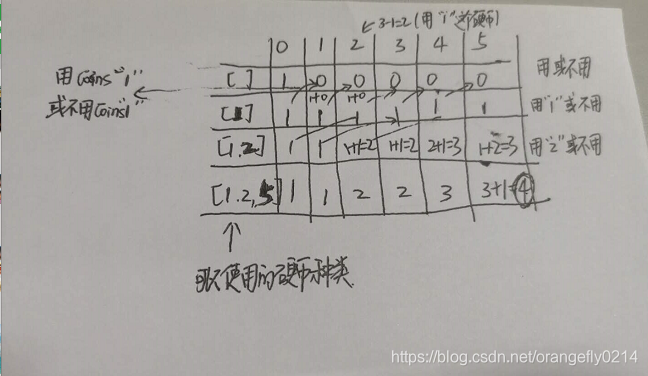 ←3-1=2(用"1"这个硬币)
0 1 2 3 4 5
[ ] 1 0 0 0 0 0 用或不用
用coins"1"
1+0 1+0
或不用Coin"1"
[1] 1 1 1 1 1 1 用"1"或不用
[1.2] 1 1 1+1=2 1+1=2 2+1=3 1+2=3 用"2"或不用
[1.2,5] 1 1 2 2 3 3+1=4
↑
可以使用的硬币种类
https://blog.csdn.net/orangefly0214